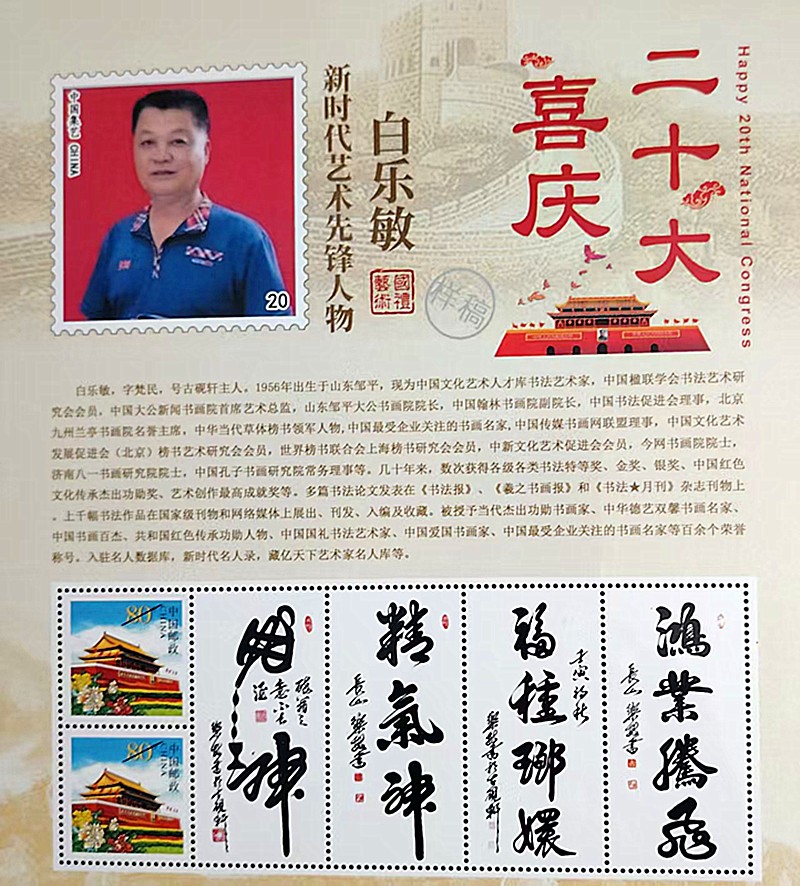 中国集艺 CHINA
20
新时代艺术先锋人物
白乐敏
國禮藝術
样稿
喜庆
二十大
Happy 20th National Congress
白乐敏，字梵民，号古砚轩主人。1956年出生于山东邹平，现为中国文化艺术人才库书法艺术家，中国楹联学会书法艺术研
究会会员，中国大公新闻书画院首席艺术总监，山东邹平大公书画院院长，中国翰林书画院副院长，中国书法促进会理事，北京
九州兰亭书画院名誉主席，中华当代草体榜书领军人物,中国最受企业关注的书画名家,中国传媒书画网联盟理事，中国文化艺术
发展促进会（北京）榜书艺术研究会会员，世界榜书联合会上海榜书研究会会员，中新文化艺术促进会会员，今网书画院院士，
济南八一书画研究院院士，中国孔子书画研究院常务理事等。几十年来，数次获得各级各类书法特等奖、金奖、银奖、中国红色
文化传承杰出功勋奖、艺术创作最高成就奖等。多篇书法论文发表在《书法报》、《羲之书画报》和《书法★月刊》杂志刊物上
。上千幅书法作品在国家级刊物和网络媒体上展出、刊发、入编及收藏。被授予当代杰出功勋书画家、中华德艺双馨书画名家、
中国书画百杰、共和国红色传承功勋人物、中国国礼书法艺术家、中国爱国书画家、中国最受企业关注的书画名家等百余个荣誉
称号。入驻名人数据库，新时代名人录，藏亿天下艺术家名人库等。
80
CHINA
中国邮政
80
CHINA
中国邮政
精氣神
長山 樂敏書
福種瑯嬛
壬寅初秋
鴻業騰飛
長山 樂敏書